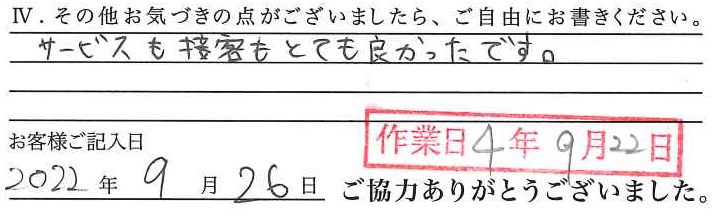 Ⅳ．その他お気づきの点がございましたら、ご自由にお書きください。
サービスも接客もとても良かったです。
お客様ご記入日
作業日4年9月22日
2022年9月26日
ご協力ありがとうございました。